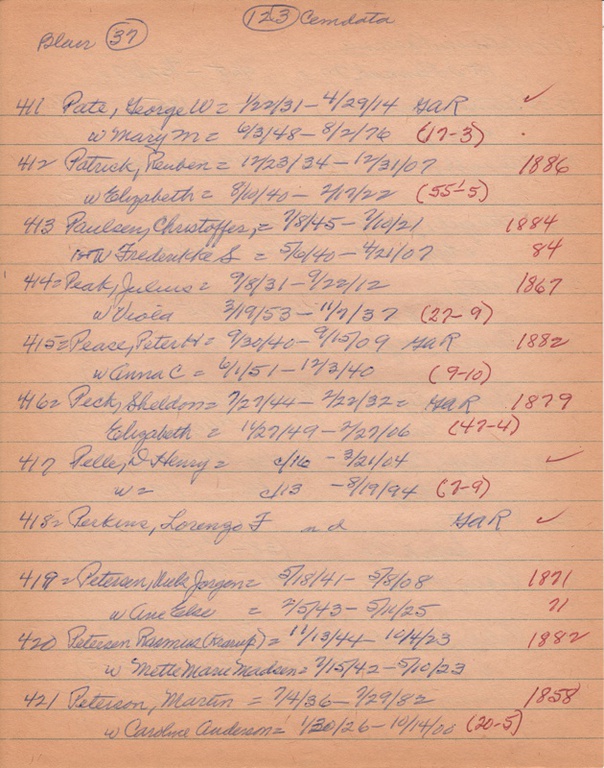 (123) Cemdata
Blair (37)
411 Pate, George W = 1/22/31 - 4/29/14 GAR ✓
w Mary M = 6/3/48 - 8/2/76 (17-3)
412 Patrick, Reuben = 12/23/34 - 12/31/07 1886
w Elizabeth = 8/10/40 - 2/17/22 (55-5)
413 Paulsen, Christoffer, = 7/8/45 - 7/10/21 1884
w Frederikke S = 5/6/40 - 4/21/07 84
414 = Peak, Julius = 9/8/31 - 9/22/12 1867
w Viola 3/19/53 - 11/2/37 (27-9)
415 = Pease, Peter H = 9/30/40 - 9/15/09 GAR 1882
w Anna C = 6/1/51 - 12/3/40 (9-10)
416 = Peck, Sheldon = 7/27/44 - 2/22/32 = GAR 1879
Elizabeth = 11/27/49 - 2/27/06 (47-4)
417 Pelle, D Henry = c/16 - 3/21/04 ✓
w = c/13 - 8/19/94 (7-9)
418 = Perkins, Lorenzo F n d GAR ✓
419 = Petersen, Jorgen = 5/18/41 - 5/8/08 1871
w Ane Else = 2/5/43 - 5/11/25 71
420 Petersen Rasmus (Krarup) = 11/13/44 - 10/4/23 1882
w Mette Marie Madsen = 7/15/42 - 5/10/23
421 Peterson, Martin = 7/4/36 - 7/29/82 1858
w Caroline Anderson = 1/30/26 - 10/14/00 (20-5)